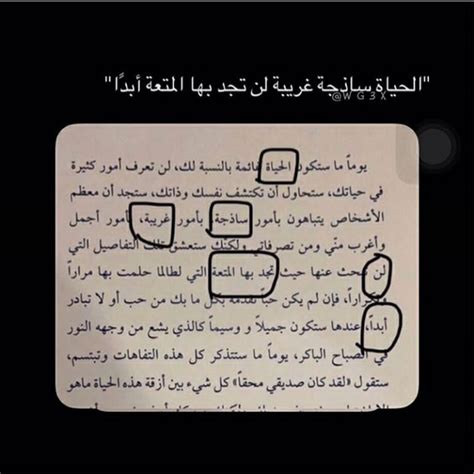 "الحياة ساذجة غريبة لن تجد بها المتعة أبدًا"
@W G 3 X
يوماً ما ستكون الحياة قائمة بالنسبة لك، لن تعرف أمور كثيرة
في حياتك، ستحاول أن تكتشف نفسك وذاتك، ستجد أن معظم
الأشخاص يتباهون بأمور ساذجة، بأمور غريبة، بأمور أجمل
وأغرب منّي ومن تصرفاتي ولكنك ستعشق تلك التفاصيل التي
لن تبحث عنها حيث تجد بها المتعة التي لطالما حلمت بها مراراً
وتكراراً، فإن لم يكن حباً نقدمه بكل ما بك من حب أو لا تبادر
أبداً، عندها ستكون جميلاً و وسيماً كالذي يشع من وجهه النور
في الصباح الباكر، يوماً ما ستتذكر كل هذه التفاهات وتبتسم،
ستقول «لقد كان صديقي محقاً» كل شيء بين أزقة هذه الحياة ماهو